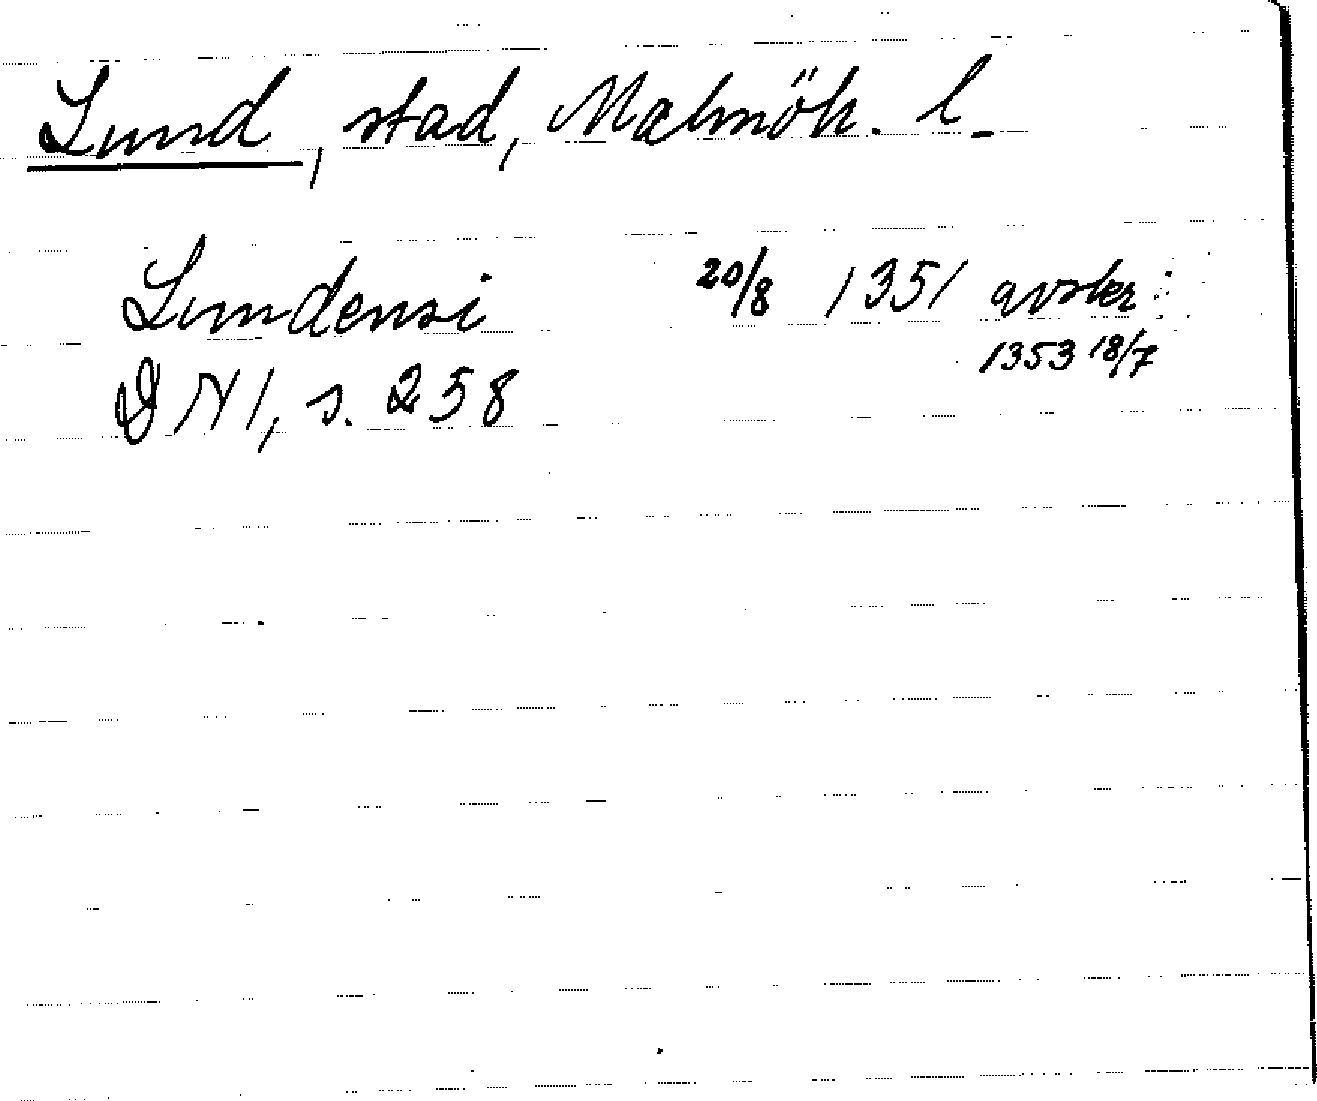 Lund, stad, Malmöh. l.
Lundensi 20/8 1351 avskr.
1353 18/7
DN 1, s. 258